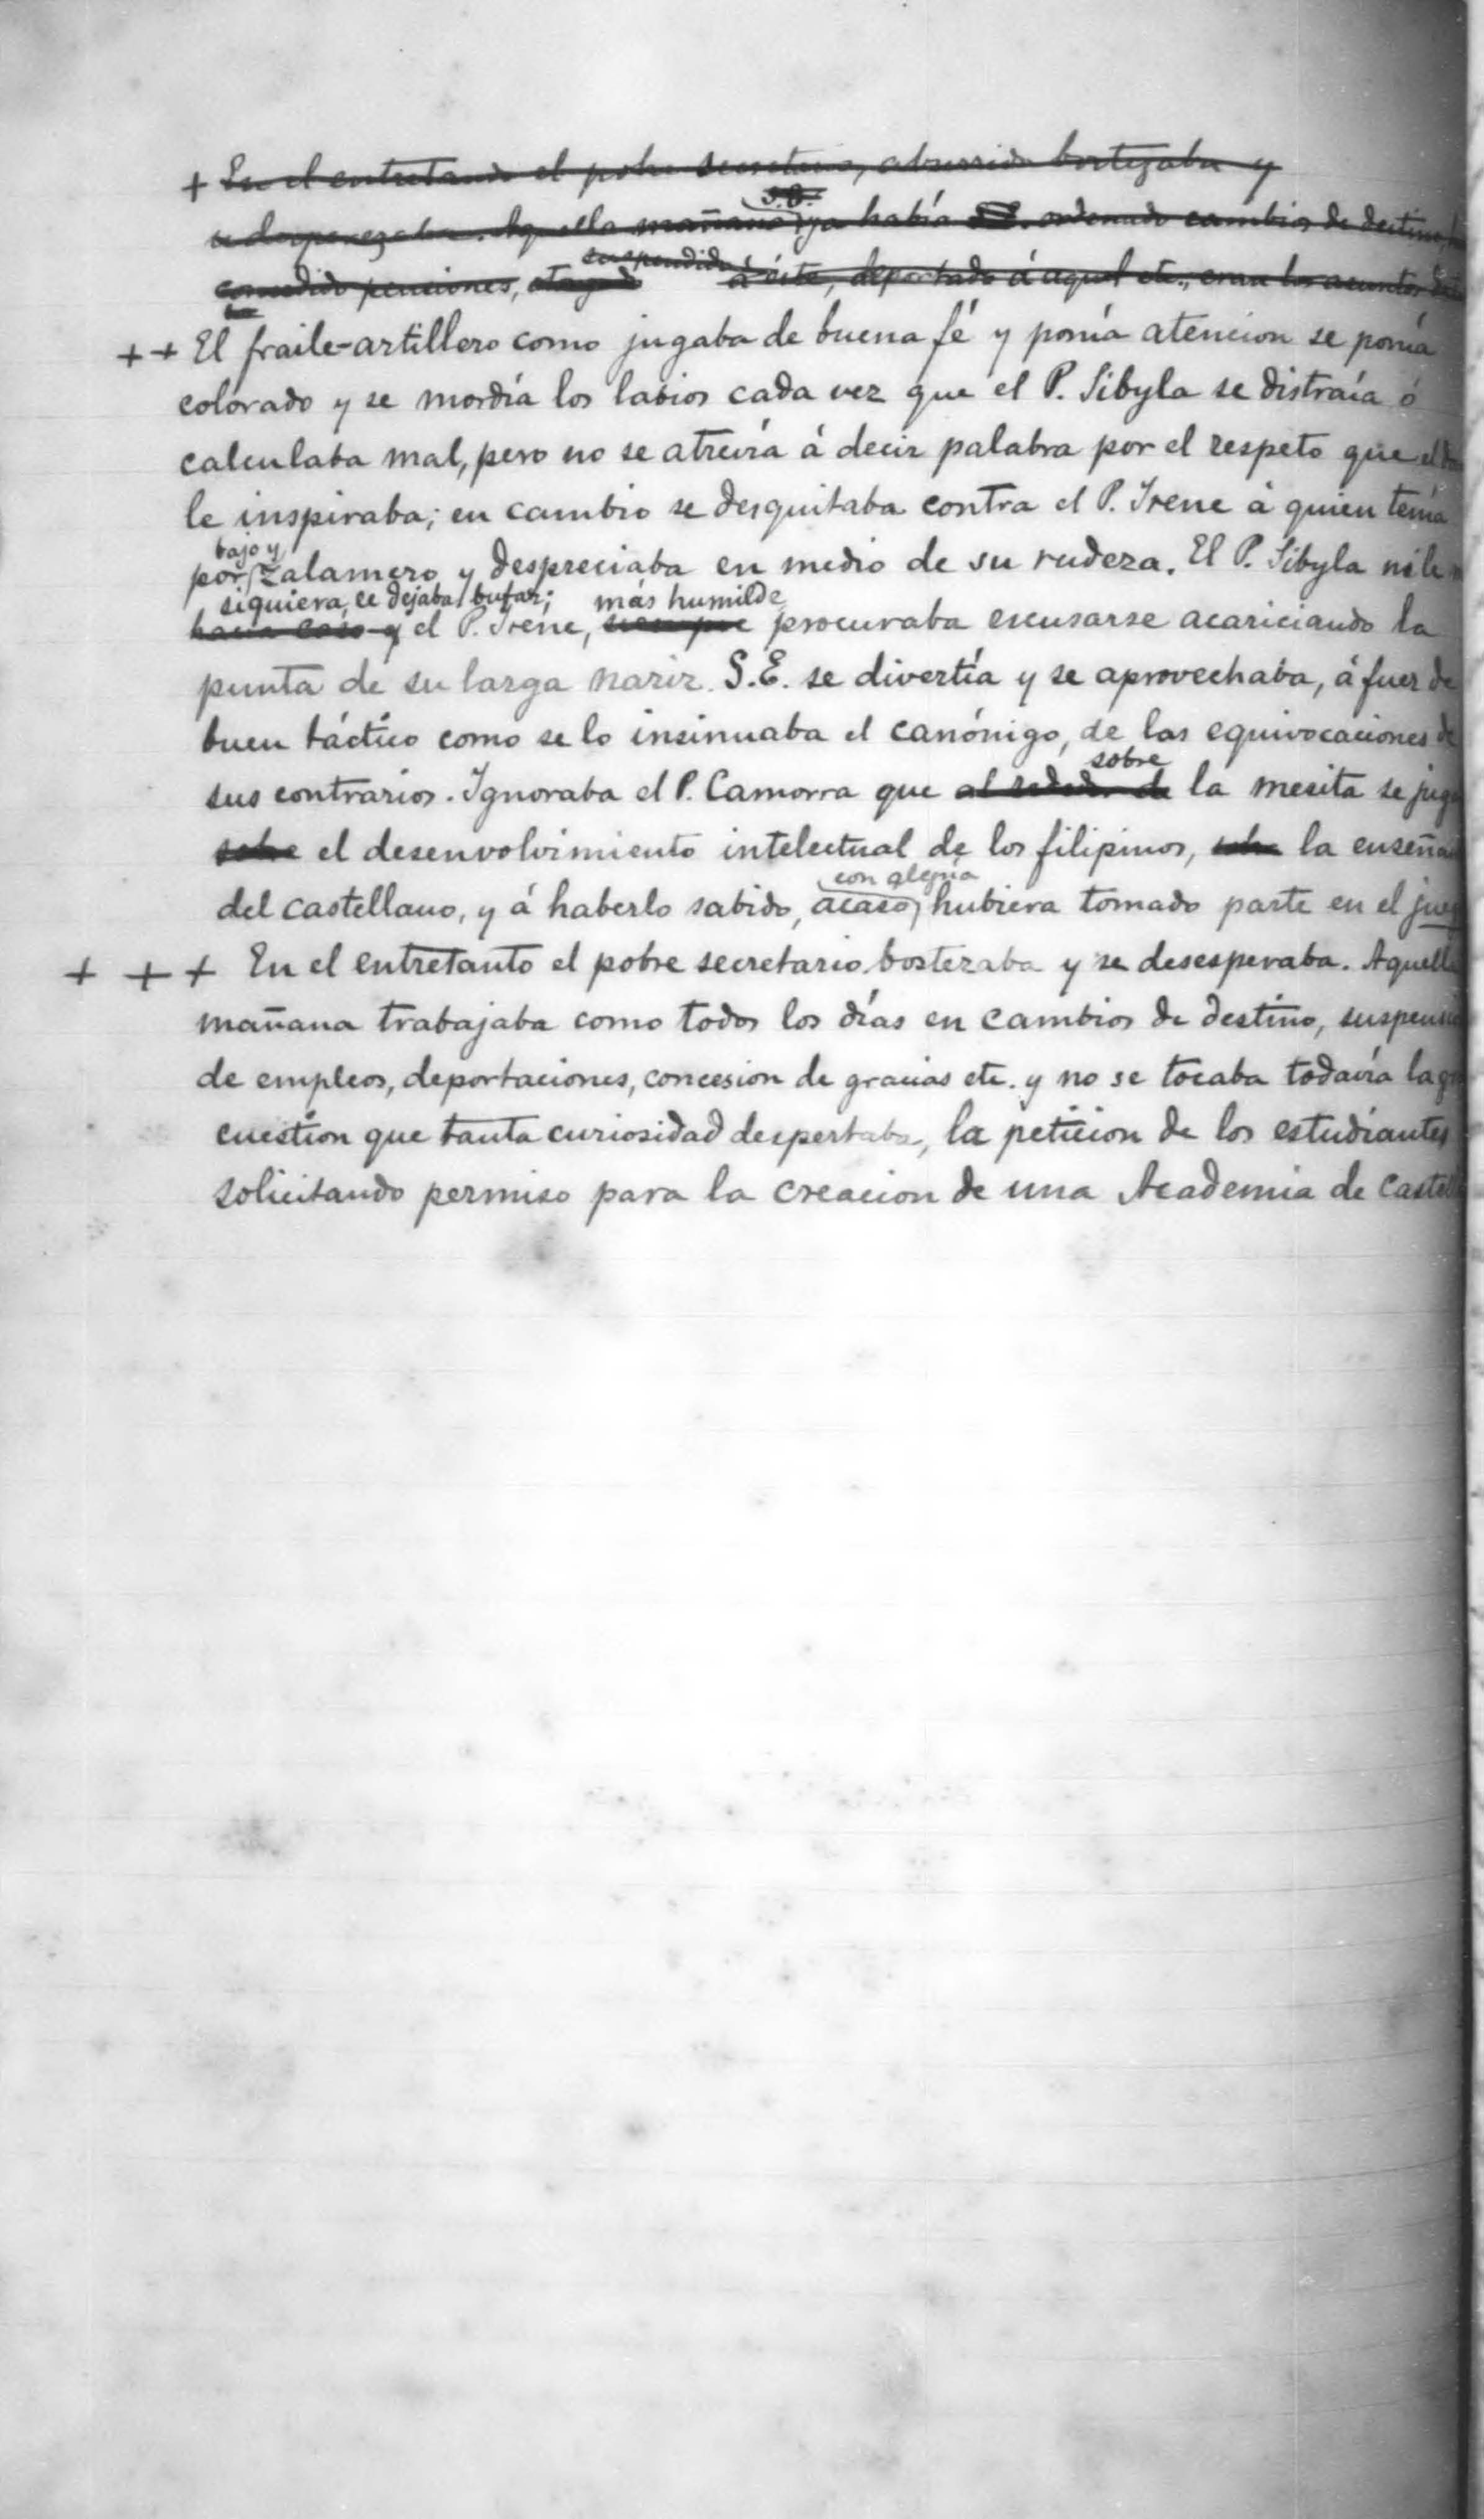 + En el entretanto el pobre secretario, aburrido bostezaba y
S.E.
se desperezaba. Aquella mañana ya había ordenado cambios de destino,
suspendido
concedido pensiones, á éste, deportado á aquel etc., eran los asuntos
++ El fraile-artillero como jugaba de buena fé y ponía atencion se ponía
colorado y se mordía los labios cada vez que el P. Sibyla se distraía ó
calculaba mal, pero no se atrevía á decir palabra por el respeto que el
le inspiraba; en cambio se desquitaba contra el P. Irene á quien tenía
bajo y
por zalamero y despreciaba en medio de su rudeza. El P. Sibyla ni le
siquiera, le dejaba bufar; más humilde
hacía caso y el P. Irene, siempre procuraba escusarse acariciando la
punta de su larga nariz. S.E. se divertía y se aprovechaba, á fuer de
buen táctico como se lo insinuaba el canónigo, de las equivocaciones de
sobre
sus contrarios. Ignoraba el P. Camorra que al rededor de la mesita se
sobre el desenvolvimiento intelectual de los filipinos, sobre la
con alegría
del castellano, y á haberlo sabido, acaso hubiera tomado parte en el
+ + + En el entretanto el pobre secretario bostezaba y se desesperaba. Aquella
mañana trabajaba como todos los días en cambios de destino,
de empleos, deportaciones, concesion de gracias etc. y no se tocaba todavía la
cuestion que tanta curiosidad despertaba, la peticion de los estudiantes
solicitando permiso para la creacion de una Academia de